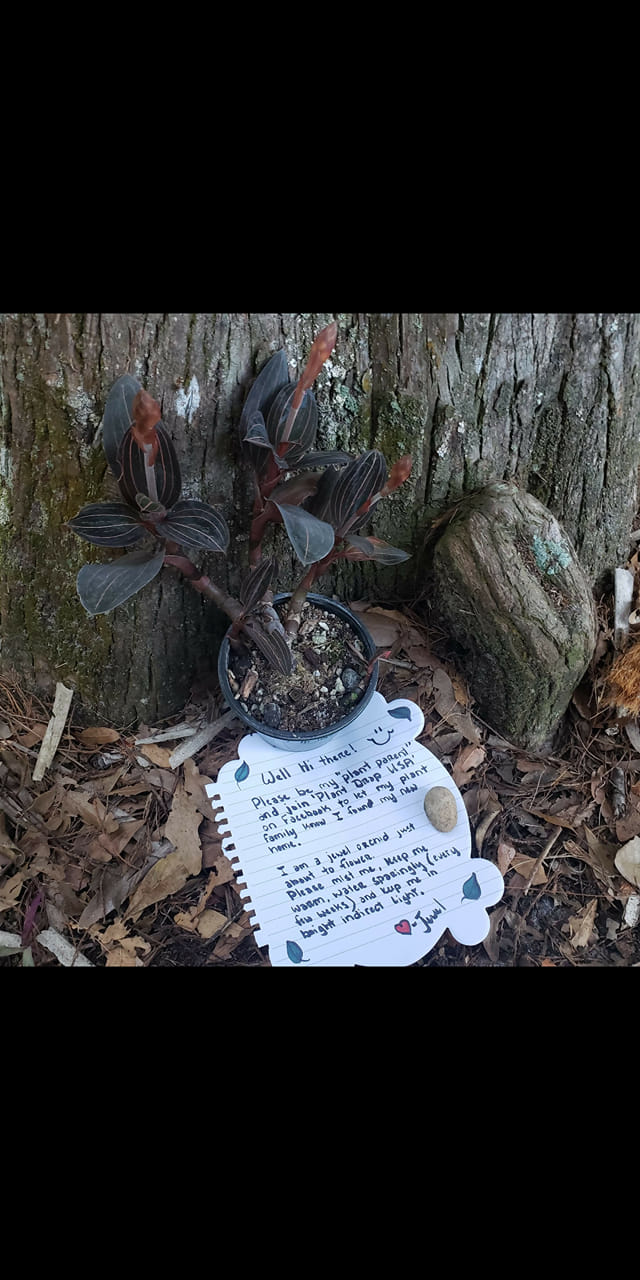 Well Hi there!
Please be my "plant parent"
and join "Plant Drop USA"
on Facebook to let my plant
family know I found my new
home.
I am a jewel orchid just
about to flower.
Please mist me, keep me
warm, water sparingly (every
few weeks) and keep me in
bright indirect light.
- Jewel